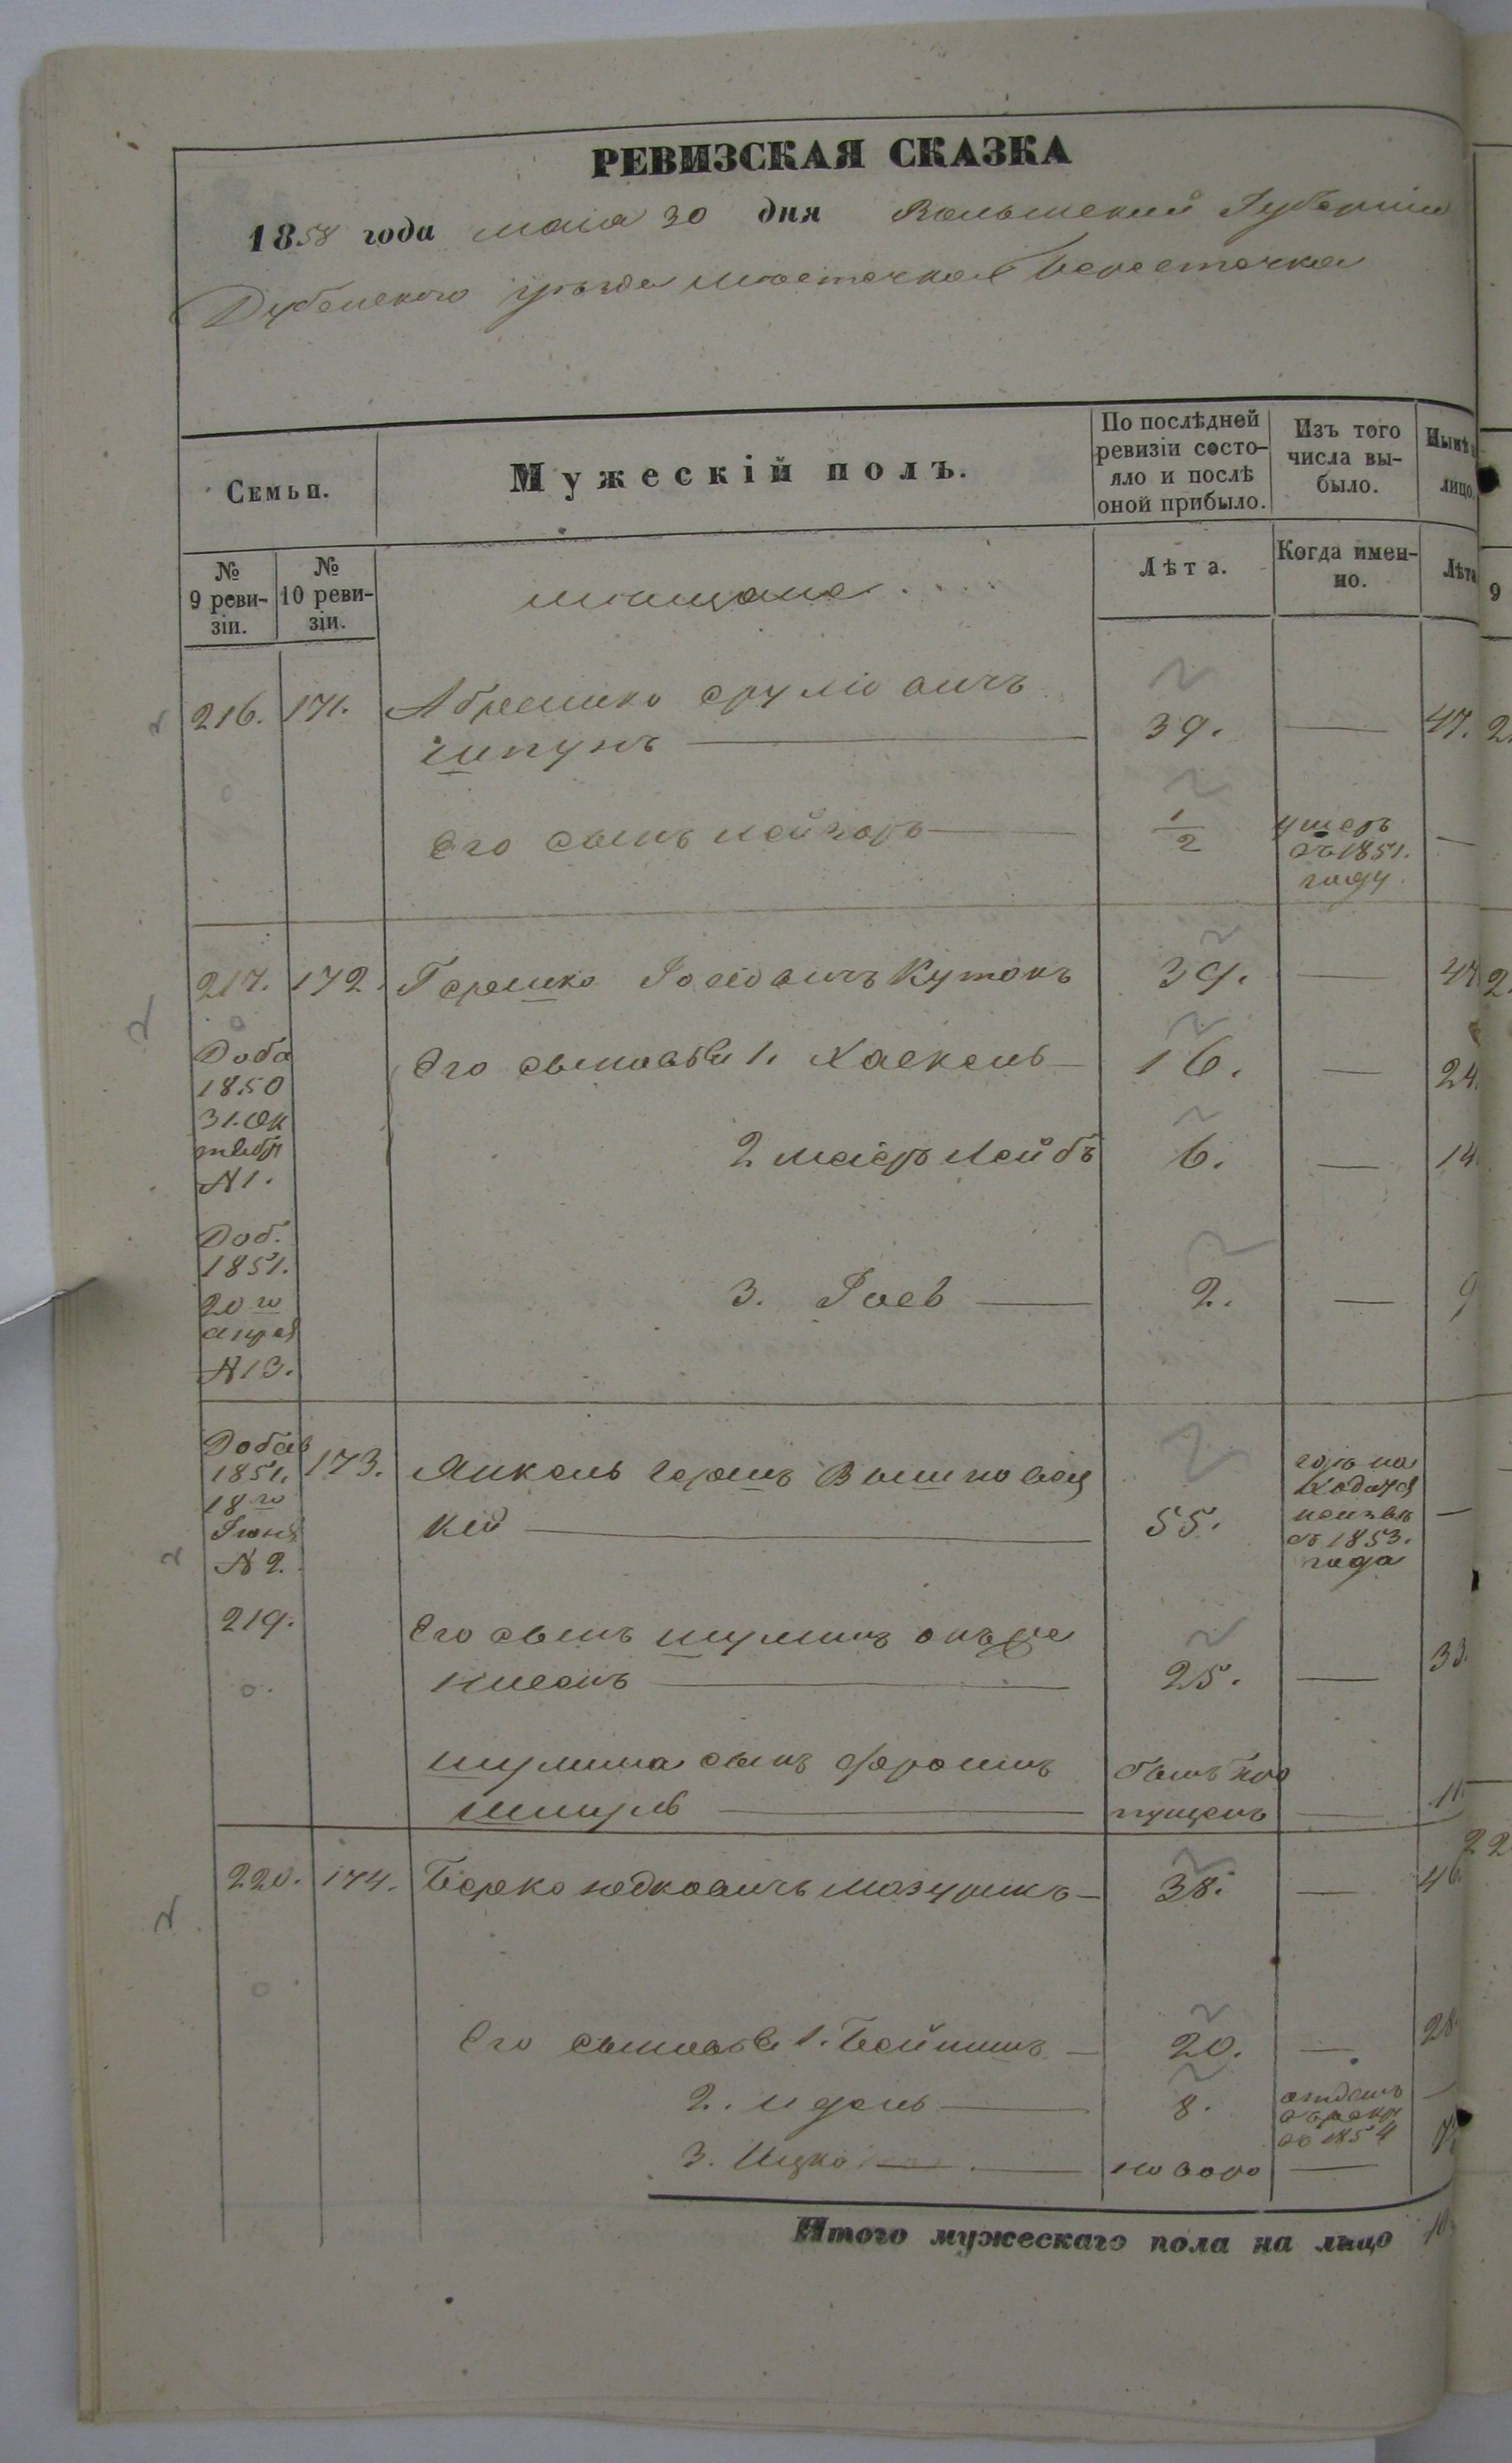 РЕВИЗСКАЯ СКАЗКА
1858 года маiя 30 дня Волынской Губернiи
Дубенского уѣзда мѣстечка Берестечка
Семьи.
Мужескiй полъ.
По послѣдней ревизiи состо-
яло и послѣ
оной прибыло.
Изъ того
числа вы-
было.
Нынѣ
лицо.
№
9 реви-
зiи.
№
10 реви-
зiи.
мѣщане
Лѣта.
Когда имен-
но.
Лѣта
216. 171. Абрамко Сруліовичъ
39. — 47.
Его сынъ Лейзоръ — 1/2 умеръ
въ 1851.
году. —
217. 172. Гершко Іосіовичъ Кутокъ 39. — 47
Доба
1850
31. Ок
тября
№ 1.
Его сыновья 1. Хаскель — 16. — 24.
2 Меіеръ Лейбъ 6. — 14
Доб.
1851.
20 го
апрел
№ 13.
3. Іось — 2. — 9
Добав
1851.
18 го
Іюня
№ 2.
173. Янкель Гершъ Вишновец
кій — 55.
неизвѣ
съ 1853.
года —
219.
Его сынъ Шулимъ
25. — 33.
Шулима сынъ
былъ про
пущенъ — 11.
220. 174. Берко Юдковичъ Мазурикъ — 38. — 46.
Его сыновья 1. Бейнишъ — 20. — 28.
2. Идель — 8. отданъ
въ рекр
въ 1854 —
3. Ицко — новоро —
Итого мужескаго пола на лицо 10